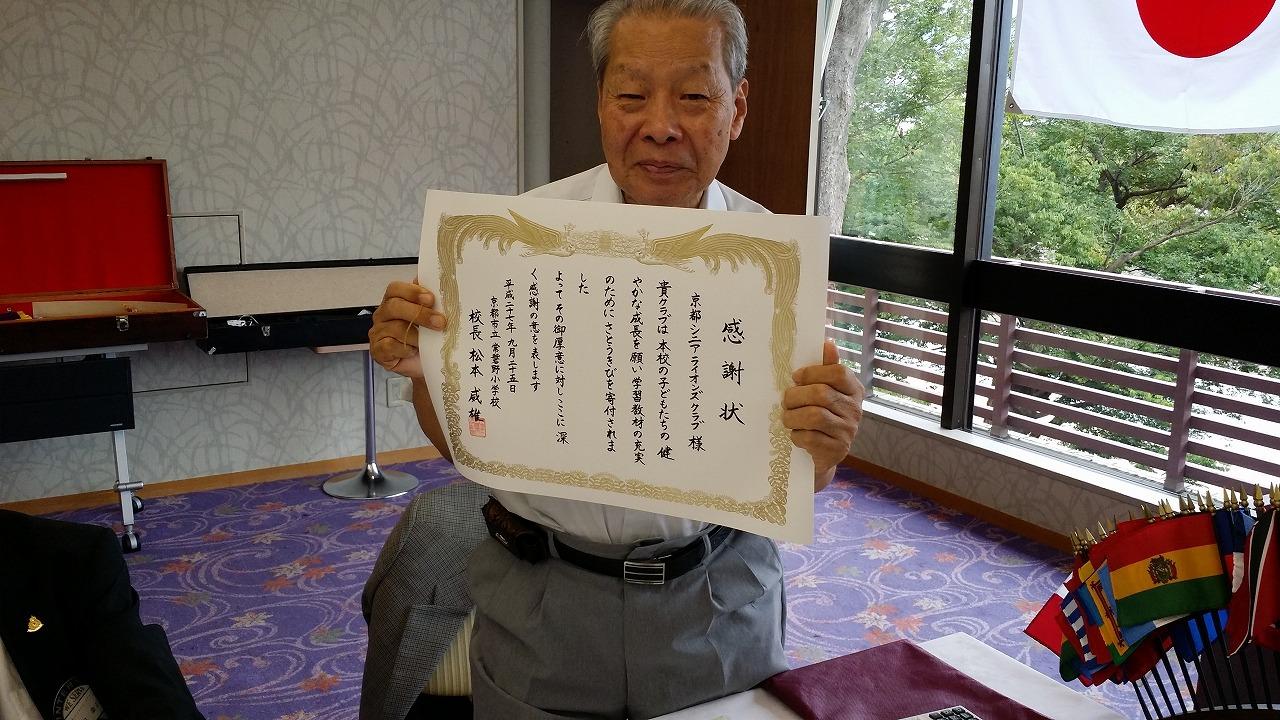 感謝状
京都シニアライオンズクラブ 様
貴クラブは 本校の子どもたちの 健
やかな成長を願い 学習教材の充実
のために さとうきびを寄付されま
した
よって その御厚意に対し ここに 深
く感謝の意を表します
平成二十七年 九月二十五日
京都市立 常磐野小学校
校長 松本 成雄